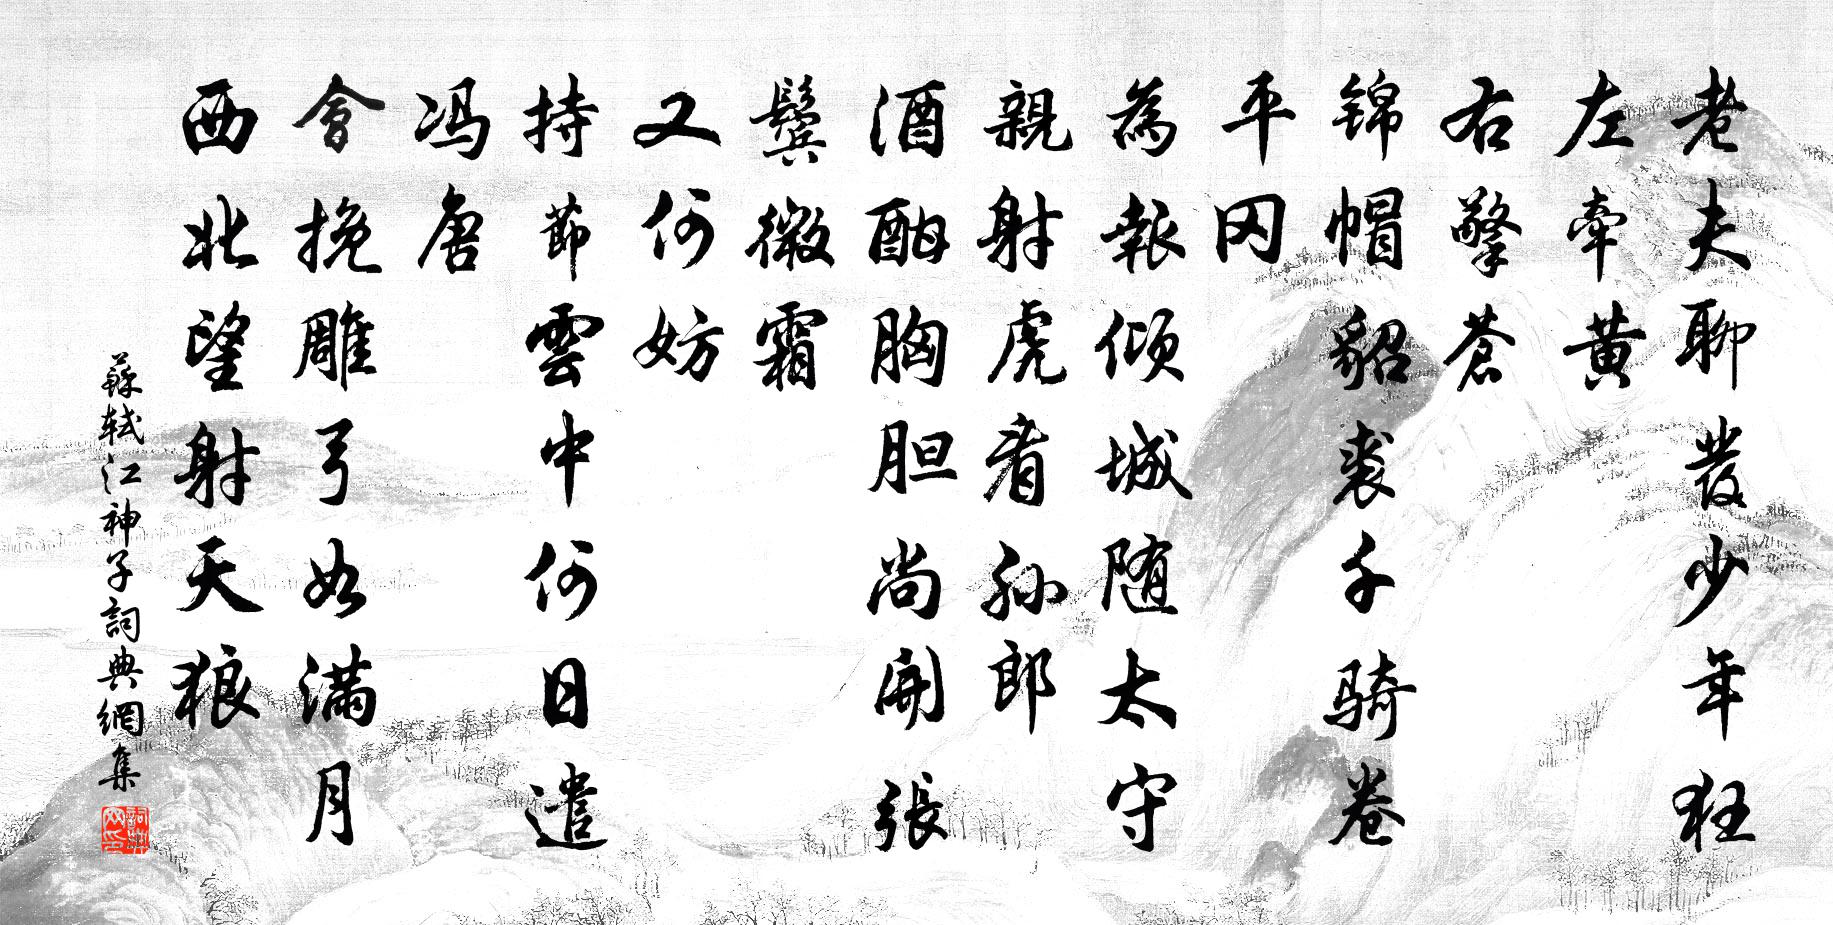 老夫聊發少年狂
左牽黃
右擎蒼
锦帽貂裘千骑卷
平冈
為報倾城随太守
親射虎看孙郎
酒酣胸胆尚開張
鬓微霜
又何妨
持節雲中何日遣
冯唐
會挽雕弓如滿月
西北望射天狼
蘇轼江神子詞典網集